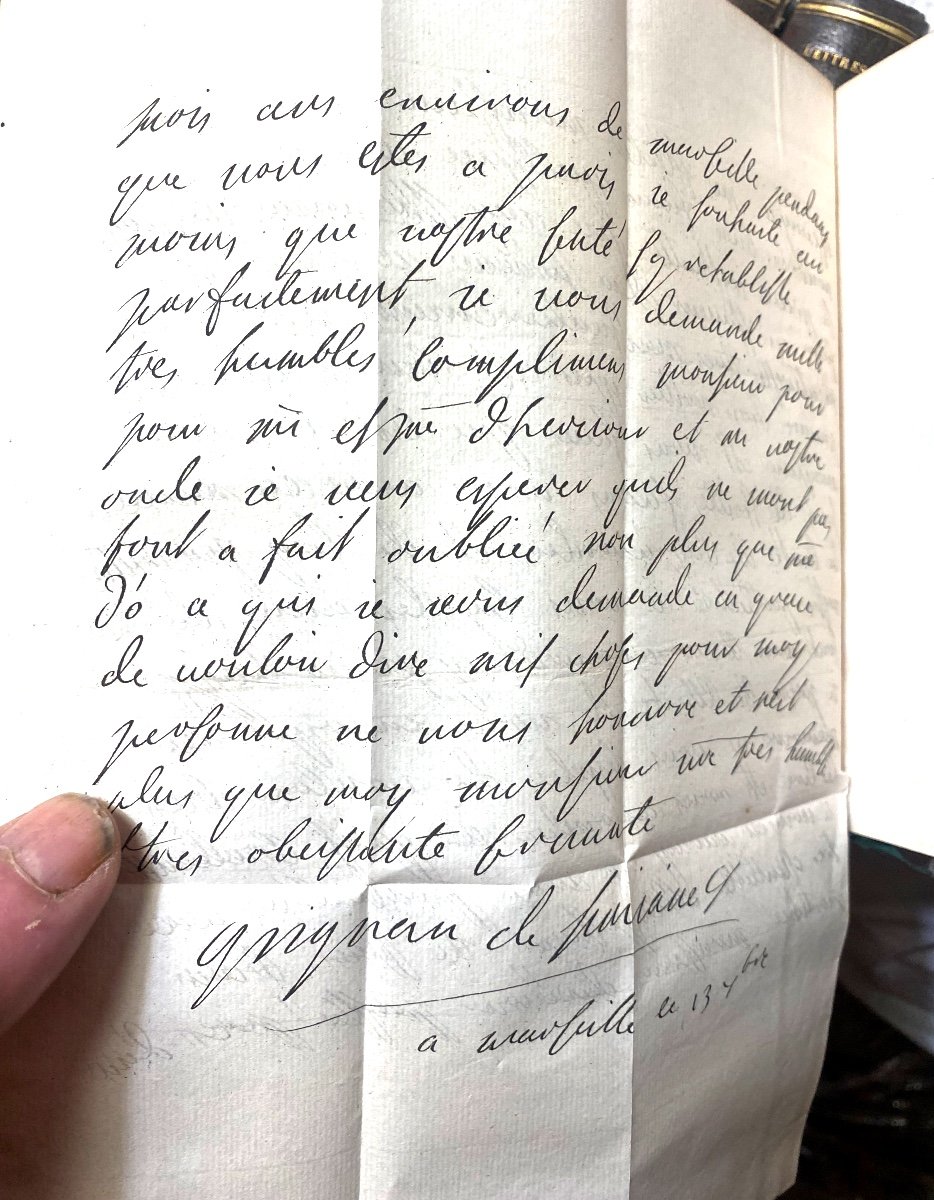 LETTRES
pois aux environs de marseille pendans
que vous estes a paris ie souhaite au
moins que vostre senté sy retablisse
parfaitement, ie vous demande mille
tres humbles compliments monsieur pour
pour mr et me et au vostre
oncle ie veus esperer quils ne mont pas
tout a fait oubliée non plus que me
a qui ie vous demande en grace
de vouloir dire mil choses pour moy
personne ne vous honnore et nest
plus que moy monsieur vre tres humble
tres obeissante servante
grignan de simiane
a marseille le 13 bre